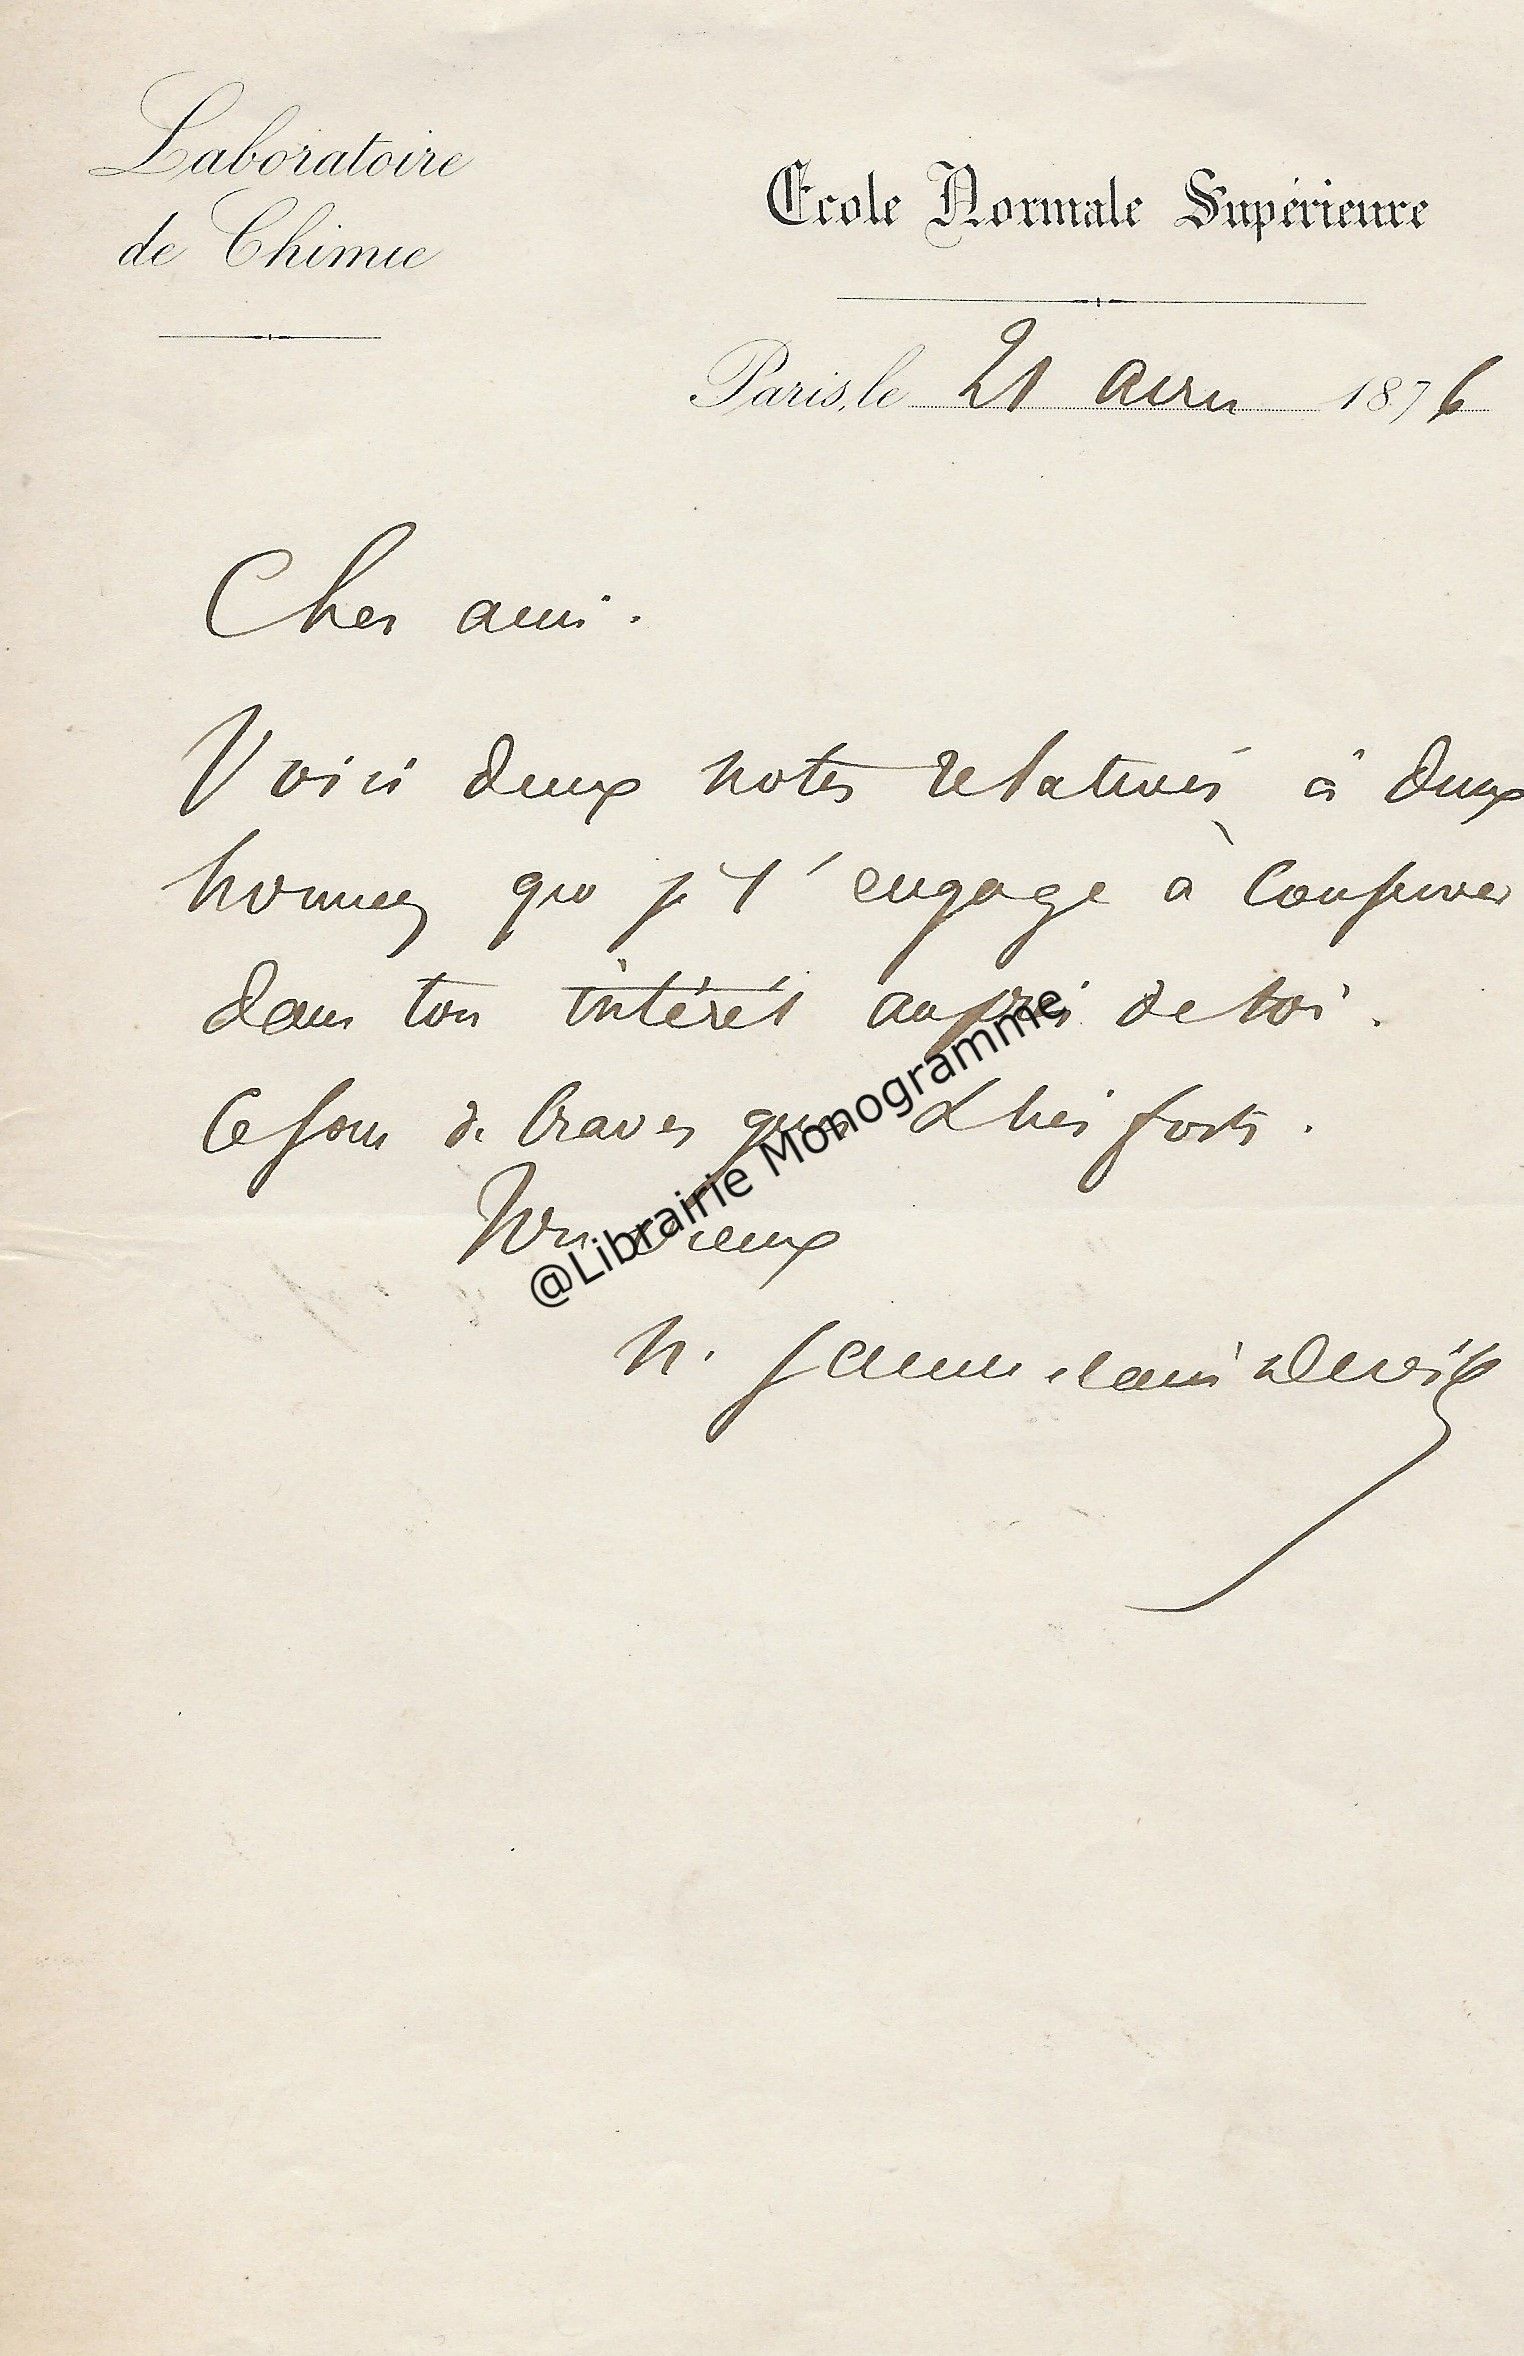 Laboratoire
de Chimie
Ecole Normale Supérieure
Paris, le 21 avril 1876
Cher ami.
Voici deux notes relatives à deux
hommes que je t'engage à conserver
dans ton intérêt auprès de toi.
Ce sont de braves gens & très forts.
Ton vieux
H. Sainte Claire Deville
@Librairie Monogramme